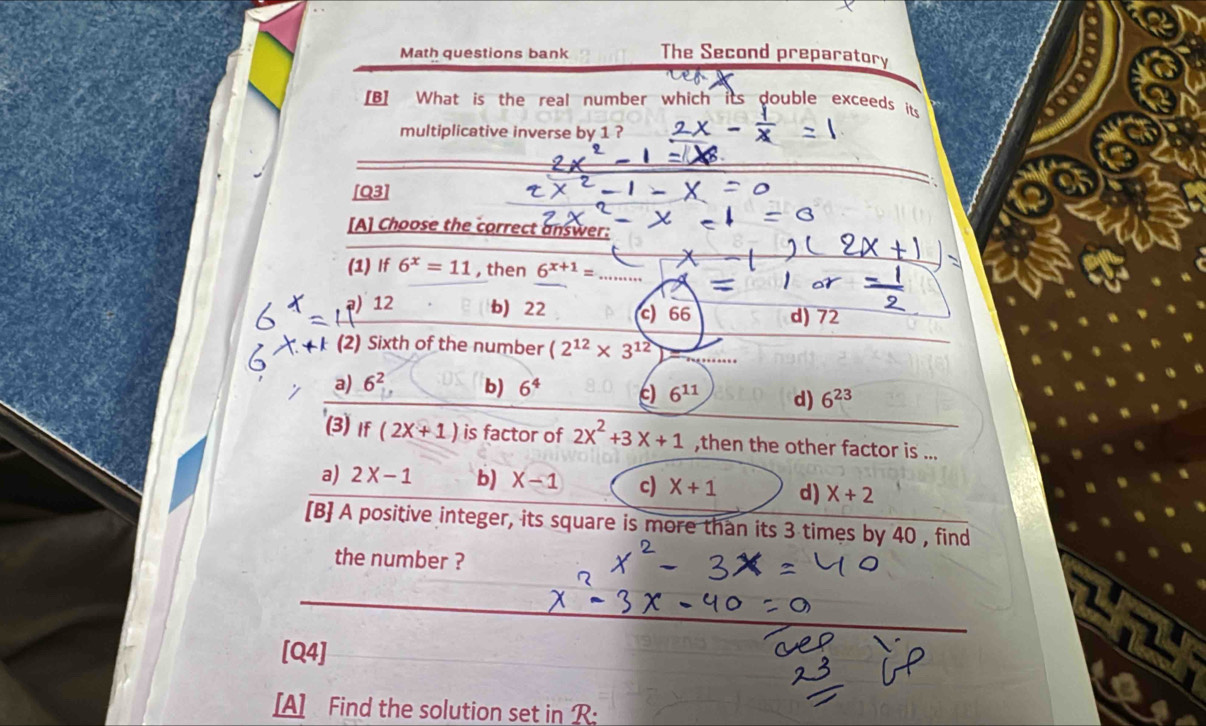 Math questions bank The Second preparatory
[B] What is the real number which its double exceeds its
multiplicative inverse by 1 ? 2x - 1/x = 1
2x² - 1 = 1x
2x² - 1 - x = 0
[Q3]
2x² - x - 1 = 0
[A] Choose the correct answer:
( x - 1 ) ( 2x + 1 ) =
(1) If 6ˣ = 11 , then 6ˣ⁺¹ = .........
x = 1 or -1/2
a) 12 b) 22 c) 66 d) 72
6ˣ = 11
6ˣ⁺¹
(2) Sixth of the number ( 2¹² × 3¹² ) = ..........
a) 6² b) 6⁴ c) 6¹¹ d) 6²³
(3) If ( 2X + 1 ) is factor of 2X² +3 X + 1 ,then the other factor is ...
a) 2 X – 1 b) X – 1 c) X + 1 d) X + 2
[B] A positive integer, its square is more than its 3 times by 40 , find
the number ? x² - 3x = 40
x² - 3x - 40 = 0
[Q4]
23
[A] Find the solution set in R: